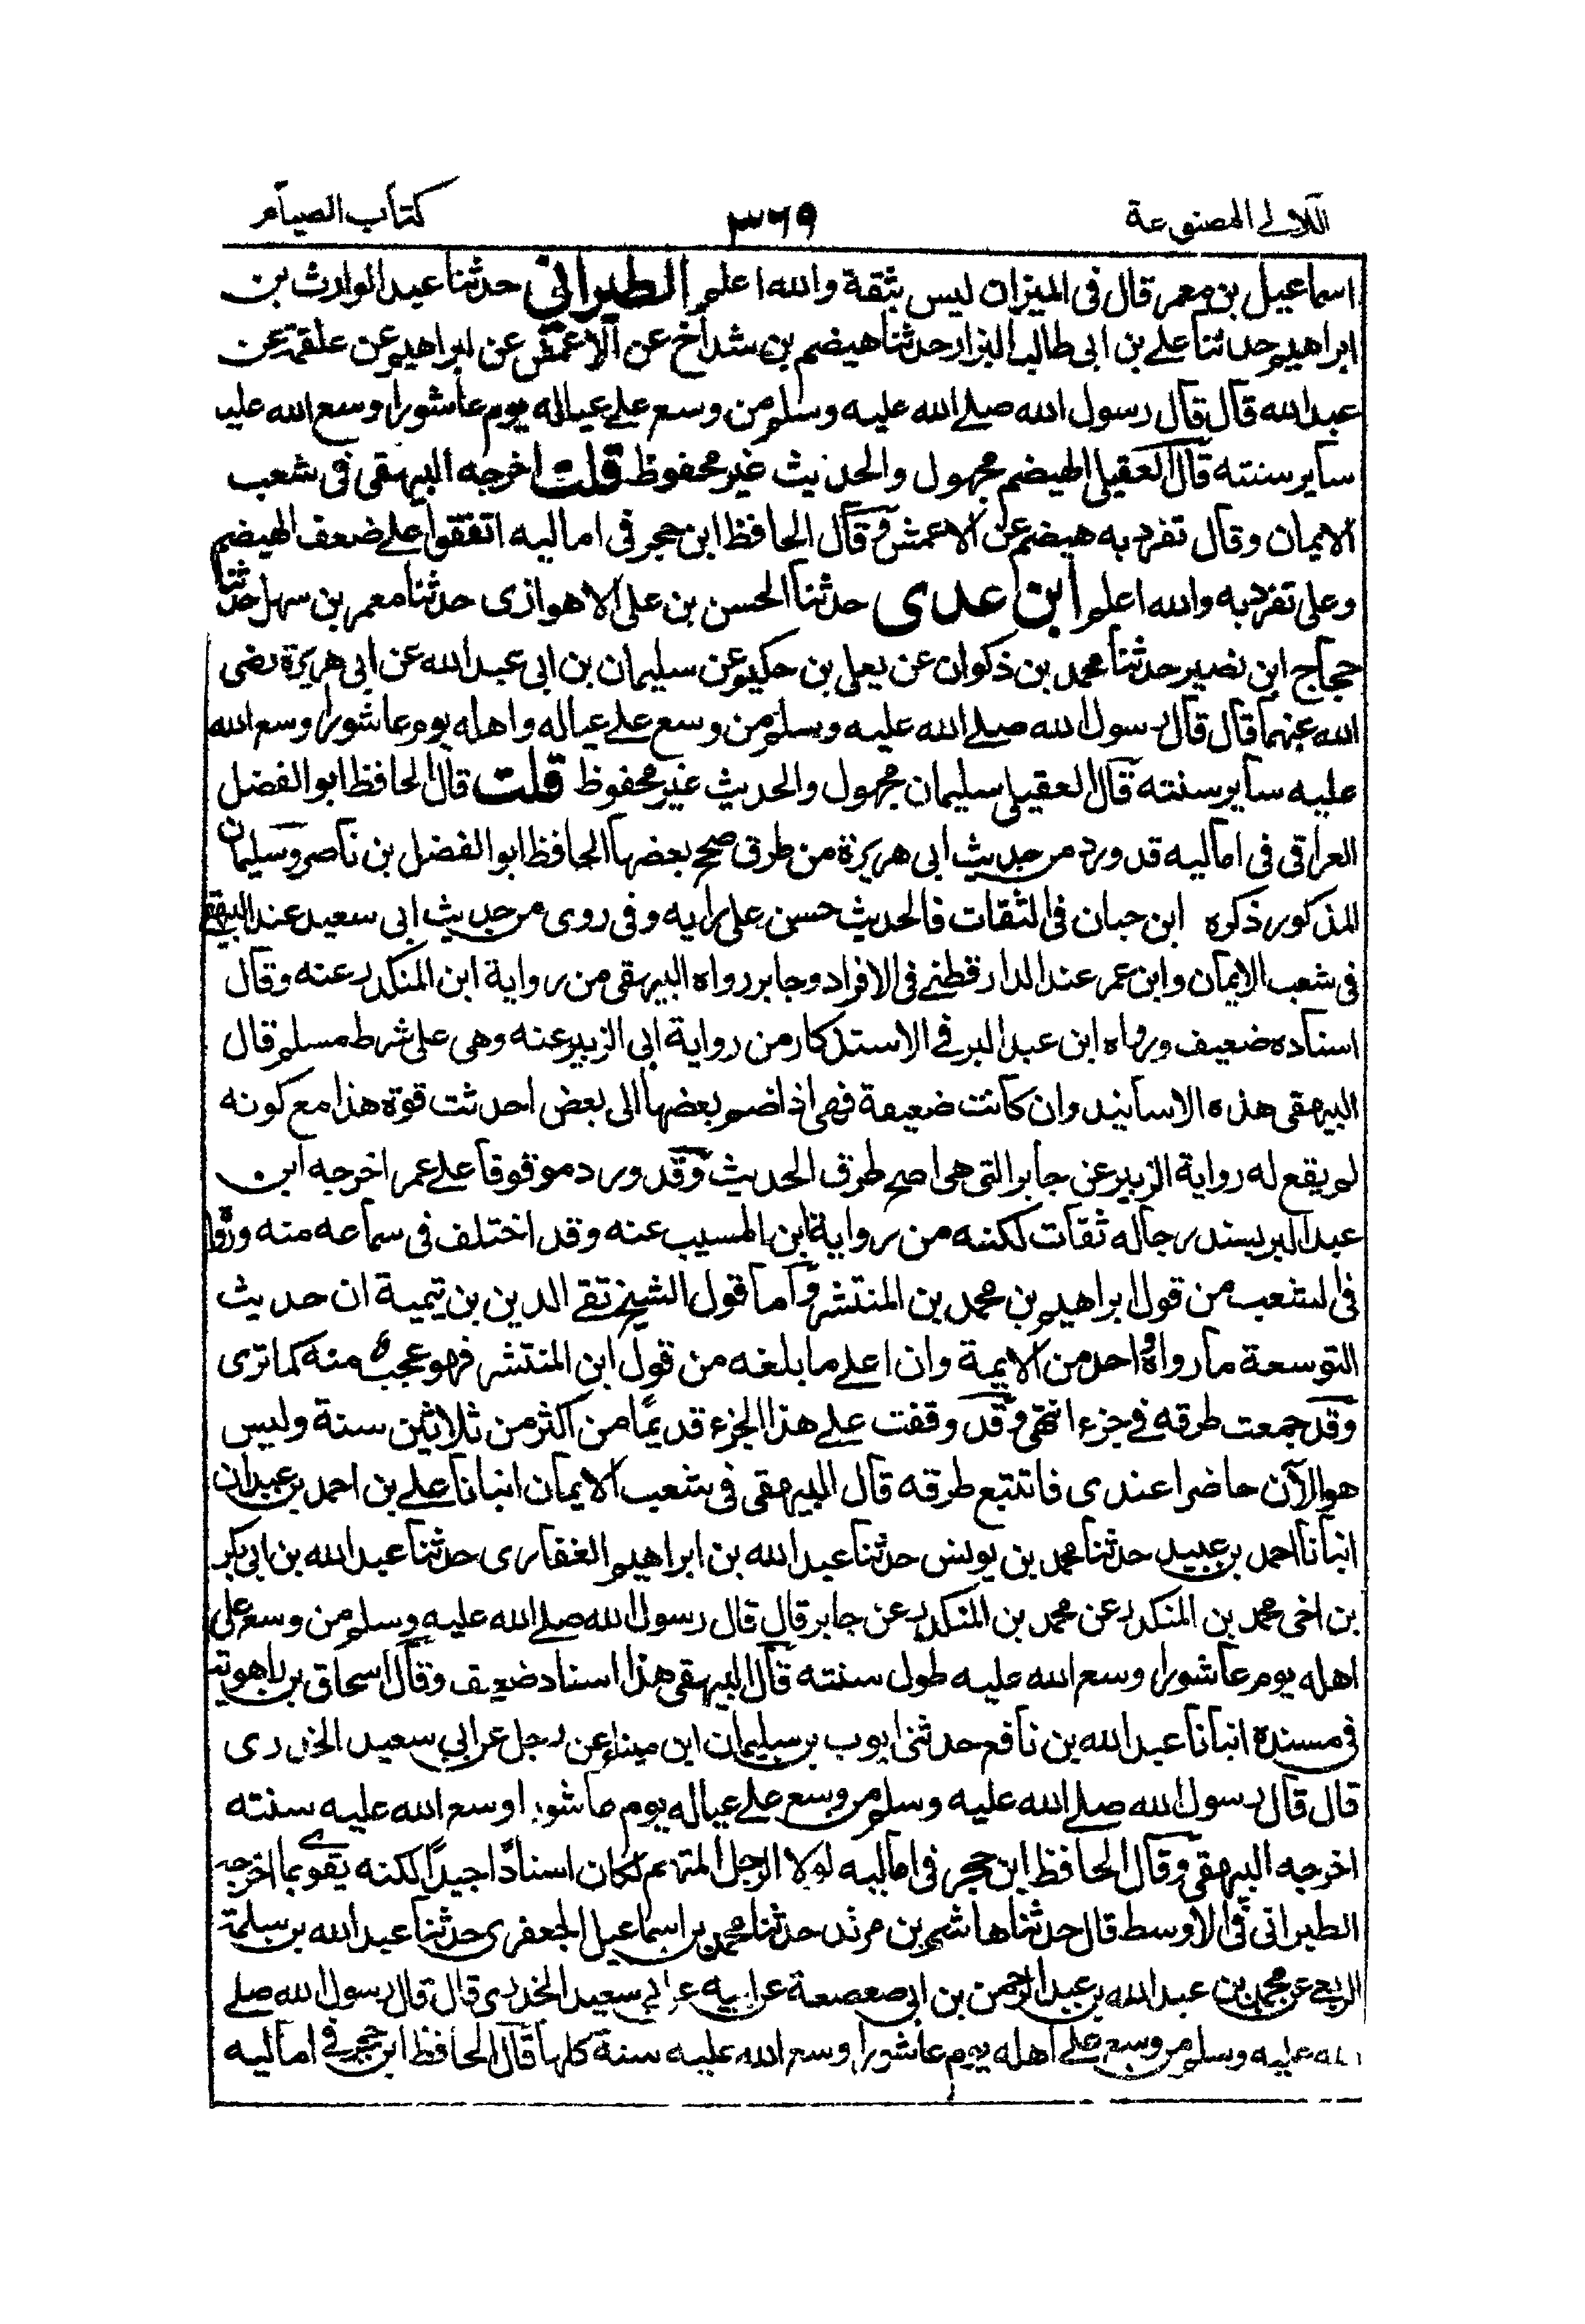 اللالى المصنوعة ٣٦٩ كتاب الصيام
اسماعيل بن معمر قال فى الميزان ليس بثقة والله اعلم الطبرانى حدثنا عبد الوارث بن
ابراهيم حدثنا على بن ابى طالب البزار حدثنا هيضم بن شداخ عن الاعمش عن ابراهيم عن علقمة عن
عبد الله قال قال رسول الله صلے الله عليه وسلم من وسع علے عياله يوم عاشورا وسع الله عليه
سائر سنته قال العقيلى الهيضم مجهول والحديث غير محفوظ قلت اخرجه البيهقى فى شعب
الايمان وقال تفرد به هيضم عن الاعمش وقال الحافظ ابن حجر فى اماليه اتفقوا علے ضعف الهيضم
وعلى تفرد به والله اعلم ابن عدى حدثنا الحسن بن على الاهوازى حدثنا معمر بن سهل حدثنا
حجاج ابن نصير حدثنا محمد بن ذكوان عن يعلى بن حكيم عن سليمان بن ابى عبد الله عن ابى هريرة رضى
الله عنهما قال قال رسول الله صلے الله عليه وسلم من وسع علے عياله واهله يوم عاشورا وسع الله
عليه سائر سنته قال العقيلى سليمان مجهول والحديث غير محفوظ قلت قال الحافظ ابو الفضل
العراقى فى اماليه قد ورد من حديث ابى هريرة من طرق صحح بعضها الحافظ ابو الفضل بن ناصر وسليمان
المذكور ذكره ابن حبان فى الثقات فالحديث حسن على رايه وفى روى من حديث ابى سعيد عند البيهقى
فى شعب الايمان وابن عمر عند الدارقطنے فى الافراد وجابر رواه البيهقى من رواية ابن المنكدر عنه وقال
اسناده ضعيف ورواه ابن عبد البر فے الاستذكار من رواية ابى الزبير عنه وهى على شرط مسلم قال
البيهقى هذه الاسانيد وان كانت ضعيفة فهى اذا ضم بعضها الى بعض احدثت قوة هذا مع كونه
لم يقع له رواية الزبير عن جابر التى هى اصح طرق الحديث وقد ورد موقوفا علے عمر اخرجه ابن
عبد البر بسند رجاله ثقات لكنه من رواية ابن المسيب عنه وقد اختلف فى سماعه منه ورواه
فى الشعب من قول ابراهيم بن محمد بن المنتشر واما قول الشيخ تقے الدين بن تيمية ان حديث
التوسعة ما رواه احد من الايمة وان اعلے ما بلغه من قول ابن المنتشر فهو عجب منه كما ترى
وقد جمعت طرقه فے جزء انتهى وقد وقفت علے هذا الجزء قديما من اكثر من ثلاثين سنة وليس
هو الآن حاضرا عندى فاتتبع طرقه قال البيهقى فى شعب الايمان انبانا علے بن احمد بن عبدان
انبانا احمد بن عبيد حدثنا محمد بن يونس حدثنا عبد الله بن ابراهيم الغفارى حدثنا عبد الله بن ابى بكر
بن اخى محمد بن المنكدر عن محمد بن المنكدر عن جابر قال قال رسول الله صلے الله عليه وسلم من وسع على
اهله يوم عاشورا وسع الله عليه طول سنته قال البيهقى هذا اسناد ضعيف وقال اسحاق بن راهويه
فى مسنده انبانا عبد الله بن نافع حدثنى ايوب بن سليمان ابن ميناء عن رجل عن ابي سعيد الخدرى
قال قال رسول الله صلے الله عليه وسلم من وسع علے عياله يوم عاشورا وسع الله عليه سنته
اخرجه البيهقى وقال الحافظ ابن حجر فى اماليه لولا الرجل المتهم لكان اسنادًا جيدًا لكنه يقوى بما اخرجه
الطبرانى فى الاوسط قال حدثنا هاشم بن مرثد حدثنا محمد بن اسماعيل الجعفرى حدثنا عبد الله بن سلمة
الربعے عن محمد بن عبد الله بن عبد الرحمن بن ابى صعصعة عن ابيه عن ابى سعيد الخدرى قال قال رسول الله صلے
الله عليه وسلم من وسع علے اهله يوم عاشورا وسع الله عليه سنة كلها قال الحافظ ابن حجر فے اماليه